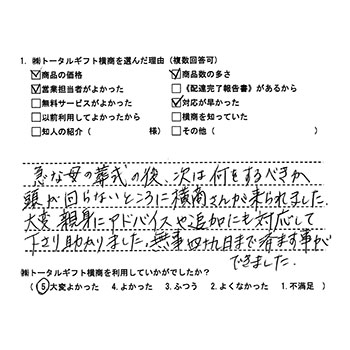 1. ㈱トータルギフト横商を選んだ理由（複数回答可）
☑商品の価格 ☑商品数の多さ
☑営業担当者がよかった □《配達完了報告書》があるから
□無料サービスがよかった ☑対応が早かった
□以前利用してよかったから □横商を知っていた
□知人の紹介（ 様） □その他（ ）
急な母の葬式の後、次は何をするべきか
頭が回らないところに横商さんが来られました。
大変親身にアドバイスや追加にも対応して
下さり助かりました。無事四十九日まで済ます事が
できました。
㈱トータルギフト横商を利用していかがでしたか？
⑤大変よかった 4.よかった 3.ふつう 2.よくなかった 1.不満足 ）